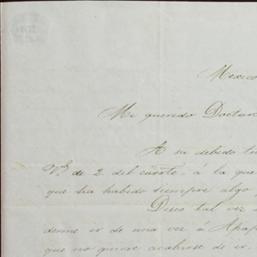 Mexico
Mi querido Doctor
A su debido
V. de 2 del corrte. á la que
que ha habido siempre algo
Deseo tal vez
denme ir de una vez á Apap
que no quiere acabarse de ir.